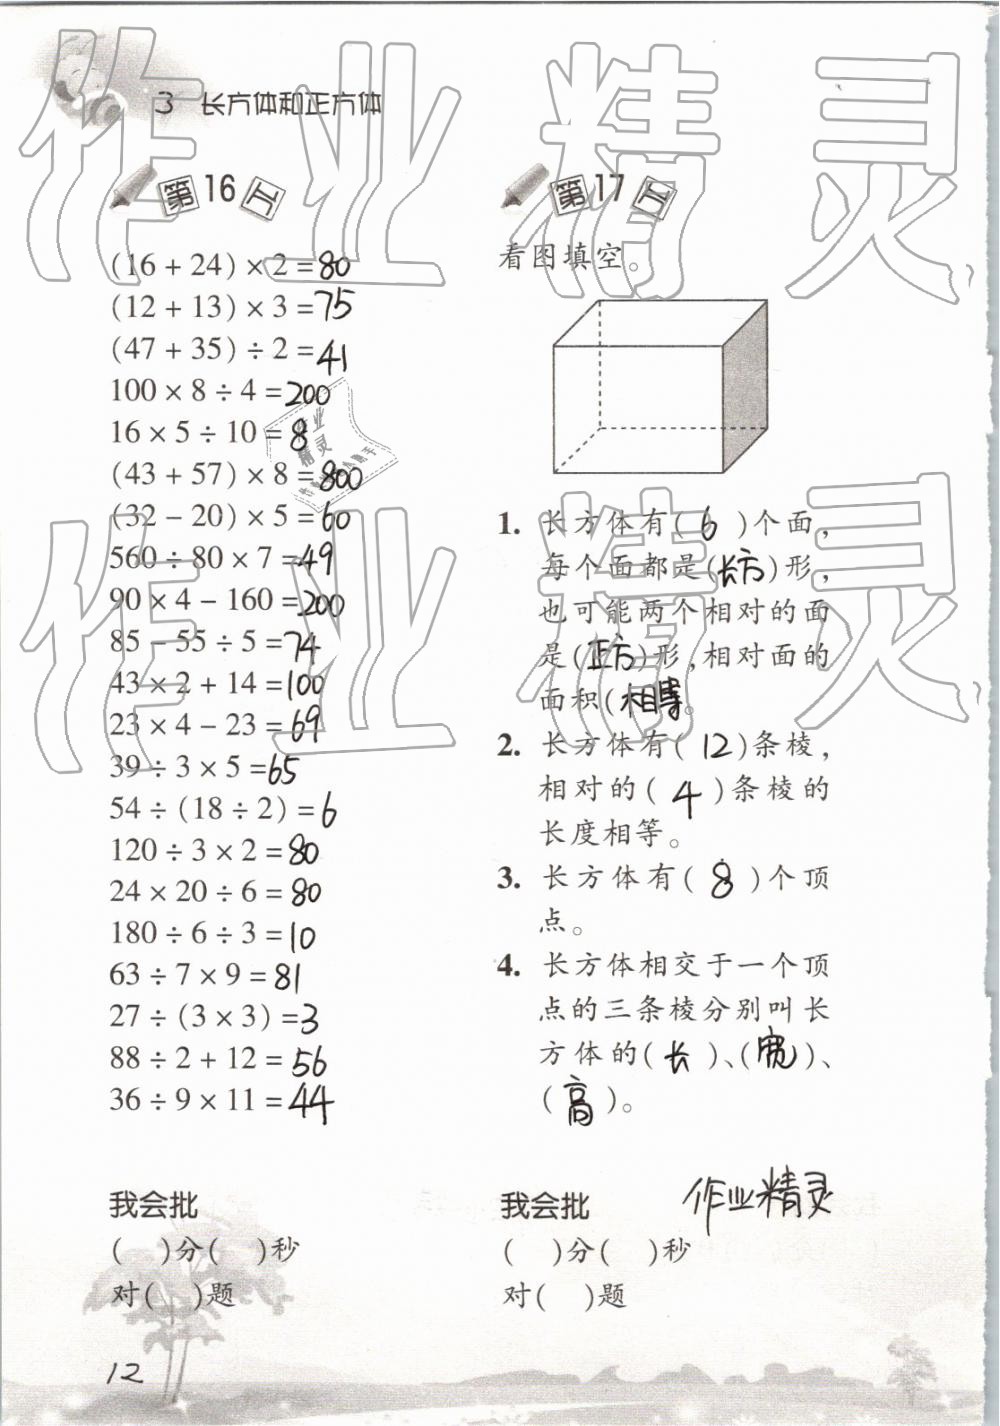 3 长方体和正方体
第16天
(16 + 24) × 2 = 80
(12 + 13) × 3 = 75
(47 + 35) ÷ 2 = 41
100 × 8 ÷ 4 = 200
16 × 5 ÷ 10 = 8
(43 + 57) × 8 = 800
(32 − 20) × 5 = 60
560 ÷ 80 × 7 = 49
90 × 4 − 160 = 200
85 − 55 ÷ 5 = 74
43 × 2 + 14 = 100
23 × 4 − 23 = 69
39 ÷ 3 × 5 = 65
54 ÷ (18 ÷ 2) = 6
120 ÷ 3 × 2 = 80
24 × 20 ÷ 6 = 80
180 ÷ 6 ÷ 3 = 10
63 ÷ 7 × 9 = 81
27 ÷ (3 × 3) = 3
88 ÷ 2 + 12 = 56
36 ÷ 9 × 11 = 44
我会批
( )分( )秒
对( )题
12
第17天
看图填空。
1. 长方体有( 6 )个面,
每个面都是(长方)形,
也可能两个相对的面
是(正方)形,相对面的
面积(相等)。
2. 长方体有( 12)条棱,
相对的( 4 )条棱的
长度相等。
3. 长方体有( 8 )个顶
点。
4. 长方体相交于一个顶
点的三条棱分别叫长
方体的( 长 )、(宽)、
( 高 )。
作业精灵
我会批
( )分( )秒
对( )题
作业精灵
作业精灵
作业
精灵